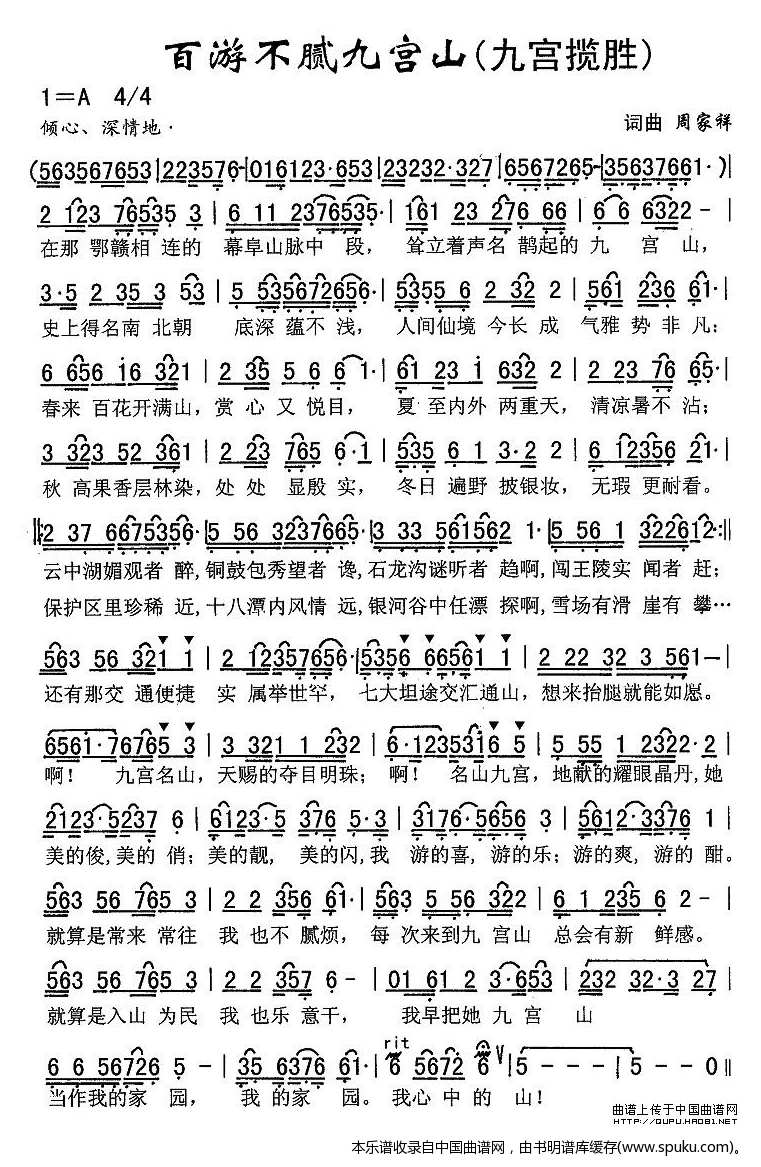 百游不腻九宫山(九宫揽胜)
1=A 4/4
倾心、深情地·
词曲 周家祥
(563567653 | 223576- | 016123·653 | 23232·327 | 6567265- | 35637661·) |
2 123 76535 3 | 6 11 2376535· | 161 23 276 66 | 6 6 6322 - |
在那 鄂赣相 连的 幕阜山脉中 段, 耸立着声名 鹊起的 九 宫 山,
3·5 2 35 3 53 | 5 535672656· | 5355 6 1 2 2 | 561 236 61· |
史上得名南 北朝 底深 蕴不 浅, 人间仙境 今长 成 气雅 势 非 凡;
6 656 16 321 | 2 35 5 6 6 1· | 61 23 1 632 2 | 2 23 76 65 |
春来 百花开满山, 赏 心 又 悦目, 夏 至内外 两重天, 清凉暑不 沾;
3 323 52 361 | 2 23 765 6·1 | 535 6 1 3·2 2 | 6 12356 21· |
秋 高果香层林染, 处 处 显殷 实, 冬日 遍野 披银妆, 无瑕 更耐看。
‖: 2 37 6675356· | 5 56 3237665· | 3 33 561562 1· | 5 56 1 322612· :‖
云中湖媚观者 醉, 铜鼓包秀望者 谗, 石龙沟谜听者 趋啊, 闯王陵实 闻者 赶;
保护区里珍稀 近, 十八潭内风情 远, 银河谷中任漂 探啊, 雪场有滑 崖有 攀…
563 56 321 1 | 2 12357656· | 5356 66561 1 | 2 22 32 3 561- |
还有那交 通便捷 实 属举世罕, 七大坦途交汇通山, 想来抬腿就能如愿。
6561·76765 3 | 3 321 1 232 | 6·1235316 5 | 5 55 1 2322·2 |
啊! 九宫名山, 天赐的夺目明珠; 啊! 名山九宫, 地献的耀眼晶丹, 她
2123·5237 6 | 6123·5 376 5·3 | 376·5656 3 | 5612·3376 1 |
美的俊, 美的 俏; 美的靓, 美的闪, 我 游的喜, 游的乐; 游的爽, 游的 酣。
563 56 765 3 | 2 2 356 61 | 563 5 56 322 | 6 1 235 6 2- |
就算是常来 常往 我 也不 腻烦, 每 次来到九 宫山 总会有新 鲜感。
563 56 765 3 | 2 23 357 6- | 01 61 2 3·653 | 232 32·3 27 |
就算是入山 为民 我 也乐 意干, 我早把她 九 宫 山
rit
6 6 56726 5- | 35 6376 61· | 6 5672 6 V | 5 - - - | 5 - - 0 ‖
当作我的家 园, 我的家 园。 我心 中 的 山!
曲谱上传于中国曲谱网
HTTP://QUPU.HAO81.NET
本乐谱收录自中国曲谱网,由书明谱库缓存(www.spuku.com)。